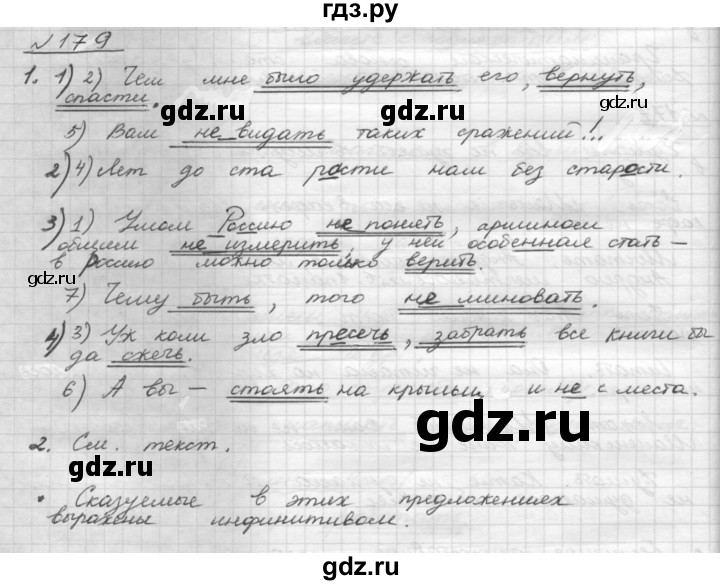 гдз.ру
№179
1. 1) 2) Чем мне было удержать его, вернуть,
спасти.
gdz.ru gdz.ru
5) Вам не видать таких сражений!..
2) 4) Лет до ста расти нам без старости.
3) 1) Умом Россию не понять, аршином
общим не измерить, у ней особенная стать –
в Россию можно только верить.
gdz.ru gdz.ru
7) Чему быть, того не миновать.
4) 3) Уж коли зло пресечь, забрать все книги бы
да сжечь.
6) А вы – стоять на крыльце и не с места.
gdz.ru
2. См. текст.
gdz.ru
• Сказуемые в этих предложениях
выражены инфинитивом.
gdz.ru gdz.ru